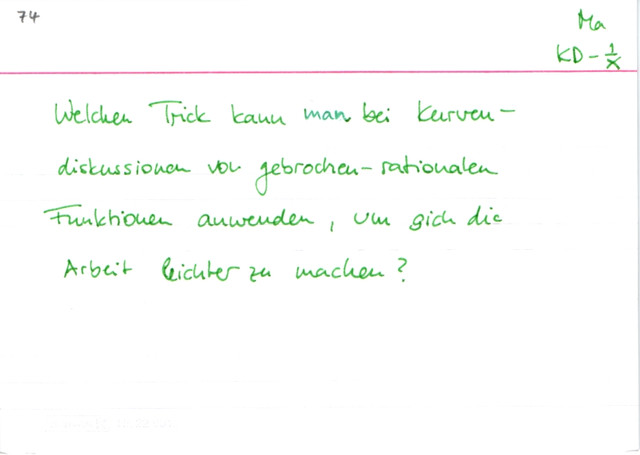 74
Ma
KD - 1/x
Welchen Trick kann man bei Kurven-
diskussionen von gebrochen-rationalen
Funktionen anwenden, um sich die
Arbeit leichter zu machen?